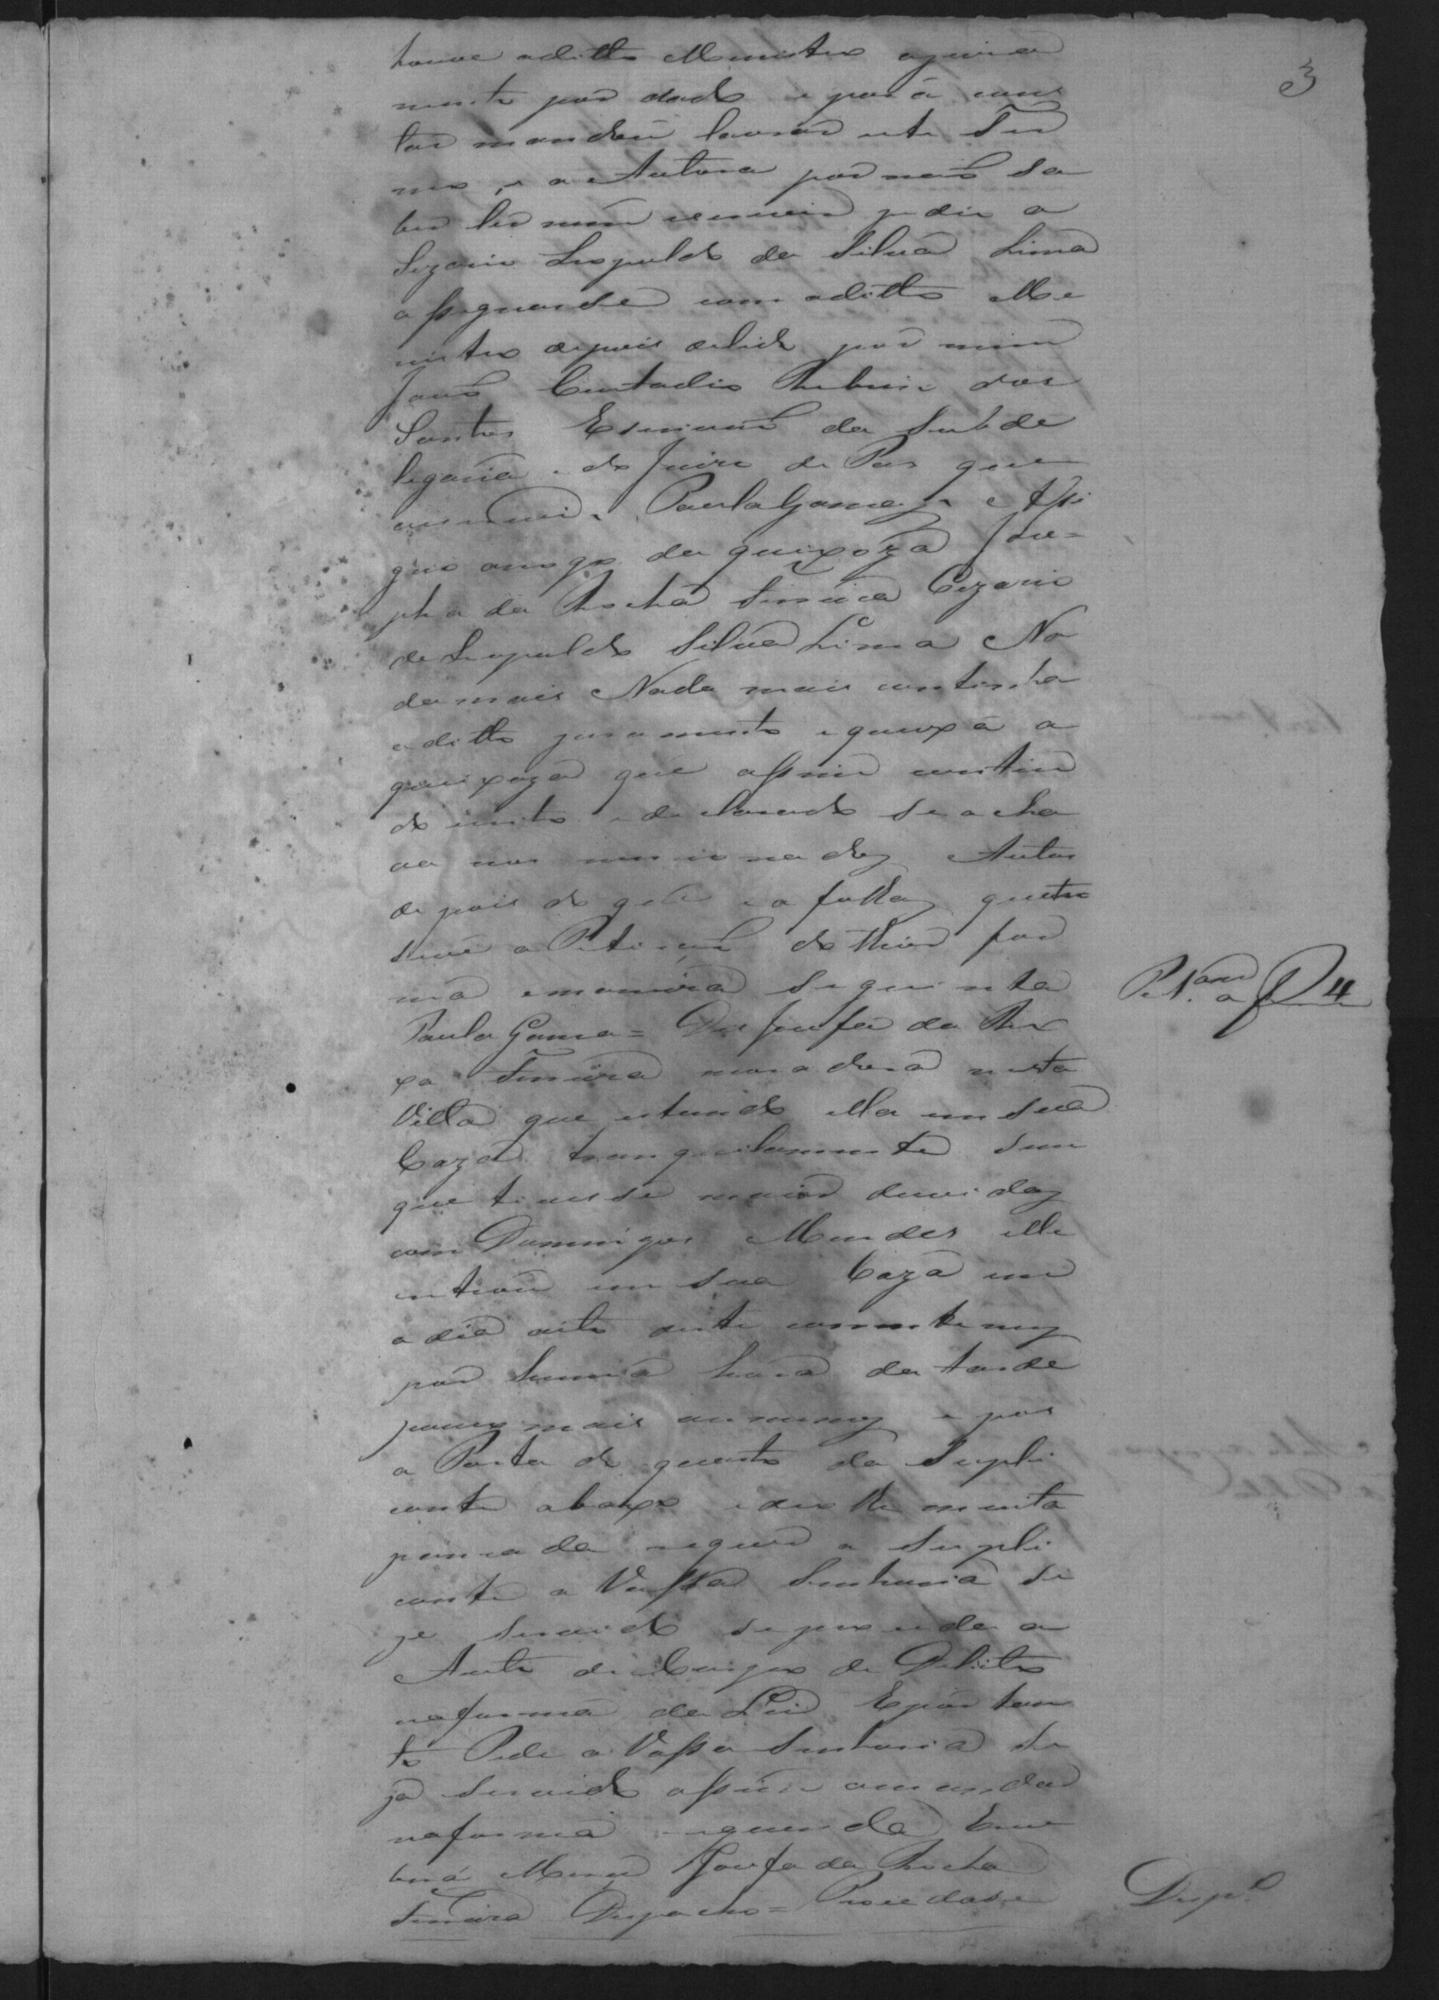 3
houve oditto Menistro ajura
mento por dado e para cons
tar mandou lavrar este Ter
mo, e a Autora por naõ sa
ber ler nem escrever pedio a
Sezario Leopoldo da Silva Lima
assignarse com oditto Me
nistro depois delido por mim
Joaõ Custodio Rubim dos
Santos Escrivaõ da Subde
legacia e do Juizo de Paz que
escrevi. Paula Gama
arogo da queixoza Joze=
pha da Rocha Ferreira Cezario
de Leopoldo Silva Lima Na
da mais Nada mais continha
oditto juramento e queixa a
queixoza que assim contin
do escrito e declarado se acha
va nos mencionados Autos
depois do que e a folhas quatro
teve a Petiçaõ dothior for
ma emaneira seguinte
Pet.am a f 4
Paula Gama= Diz Josefa da Ro
xa Ferreira moradora nesta
Villa que estando ella em sua
Caza tranquilamente sem
que tivesse maior duvidas
com Domingos Mendes elle
entrou em sua Caza em
o dia oito deste corrente mez
por huma hora da tarde
pouco mais ou menos e pos
a Porta do quarto da Supli
cante abaxo e deo lhe muita
pancada requer a Supli
cante a Vossa Senhoria se
ja servido se proceda a
Auto de Corpo de Delicto
naforma da Lei Eportan
to Pede a Vossa Senhoria se
ja servido assim omandar
naforma requerida Erece
berá Merce Josefa da Rocha
Ferreira Despacho= Procedase
Desp.º